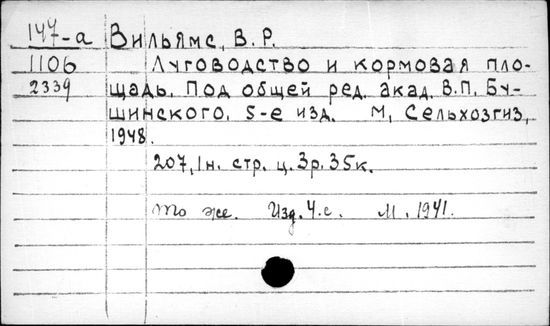 147-а Вильямс, В.Р.
1106 Луговодство и кормовая пло-
2339 щадь. Под общей ред. акад. В.П. Бу-
шинского. 5-е изд. М, Сельхозгиз,
1948.
207, 1н. стр. ц. 3р. 35к.
То же. Изд. 4.е. М. 1941.